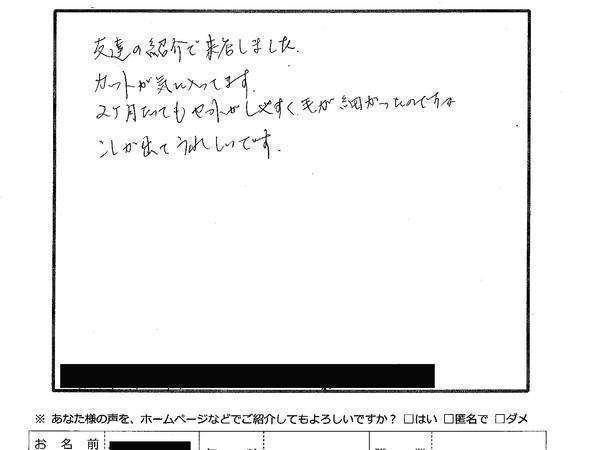 友達の紹介で来店しました。
カットが気に入ってます。
2ヶ月たってもセットがしやすく、毛が細かったのですが
コシが出てうれしいです。
※ あなた様の声を、ホームページなどでご紹介してもよろしいですか？ □はい □匿名で □ダメ
お 名 前